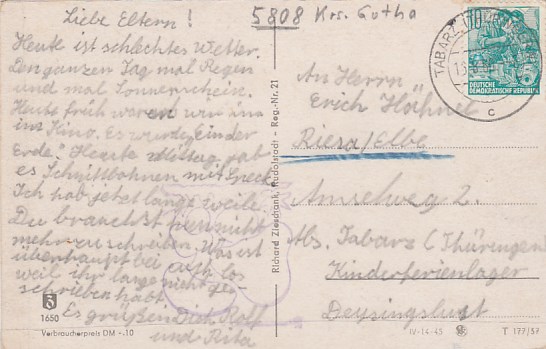 5808 Krs. Gotha
Liebe Eltern!
Heute ist schlechtes Wetter.
Den ganzen Tag mal Regen
und mal Sonnenschein.
Heute früh waren wir
im Kino. Es wurde
Erde" Heute Mittag gab
es Schnittbohnen mit Speck.
Ich hab jetzt lange weile.
Du brauchst nun nicht
mehr zu schreiben. Was ist
überhaupt bei euch los
weil ihr lange nicht ge-
schrieben habt
Es grüßen Dich Rolf
und Rita
1650
Verbraucherpreis DM -.10
Richard Zieschank, Rudolstadt - Reg.-Nr. 21
TABARZ
c
DEUTSCHE
DEMOKRATISCHE REPUBLIK
An Herrn
Erich Hähnel
Riesa/Elbe
Amselweg 2.
Abs. Tabarz (Thüringen)
Kinderferienlager
Deysingslust
IV-14-45
T 177/57